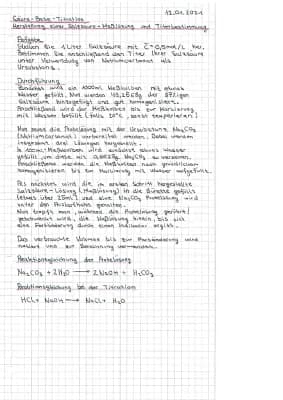 12.01.2021
Säure-Base-Titration
Herstellung einer Salzsäure-Maßlösung und Titerbestimmung
Aufgabe
Stellen Sie 1 Liter Salzsäure mit c = 0,5 mol/L her.
Bestimmen Sie anschließend den Titer Ihrer Salzsäure
unter Verwendung von Natriumcarbonat als
Ursubstanz.
Durchführung
Zunächst wird ein 1000ml Meßkolben mit etwas
Wasser gefüllt. Nun werden der %igen
Salzsäure hinzugefügt und gut homogenisiert.
Anschließend wird der Meßkolben bis zur Markierung
mit Wasser befüllt (falls 20°C, sonst temperieren)
Nun muss die Probelösung mit der Ursubstanz Na₂CO₃
(Natriumcarbonat) vorbereitet werden. Dabei werden
insgesamt drei Lösungen hergestellt.
In 100ml-Meßkolben wird zunächst etwas Wasser
gefüllt, um diese mit Na₂CO₃ zu versehen.
Anschließend werden die Meßkolben nach gründlichem
homogenisieren bis zur Markierung mit Wasser aufgefüllt.
Als nächstes wird die im ersten Schritt hergestellte
Salzsäure-Lösung (Maßlösung) in die Bürette gefüllt
(etwas über 25ml) und eine Na₂CO₃ Probelösung wird
unter den Bürette gehalten.
Nun tropft man, während die Probelösung
geschwenkt wird, die Maßlösung hinein, bis sich
eine Farbänderung durch einen Indikator ergibt.
Das verbrauchte Volumen bis zur Farbänderung wird
notiert und zur Berechnung verwendet.
Reaktionsgleichung der Probelösung
Na₂CO₃ + 2H₂O → 2NaOH + H₂CO₃
Reaktionsgleichung bei der Titration
HCl + NaOH → NaCl + H₂O